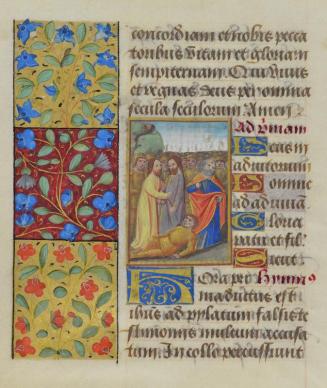 concordiam et nobis pecca
toribus vitam et gloriam
sempiternam. Qui vivis
et regnas deus per omnia
secula seculorum Amen
Ad primam
Deus in
adiutorium
Domine
ad adiuva
Gloria
patri et fil
Sicut
Hora p(ri) hymnus
ma ductus est
ihus ad pylatum falsis te
stimoniis multum accusa
tum In collo percussiunt